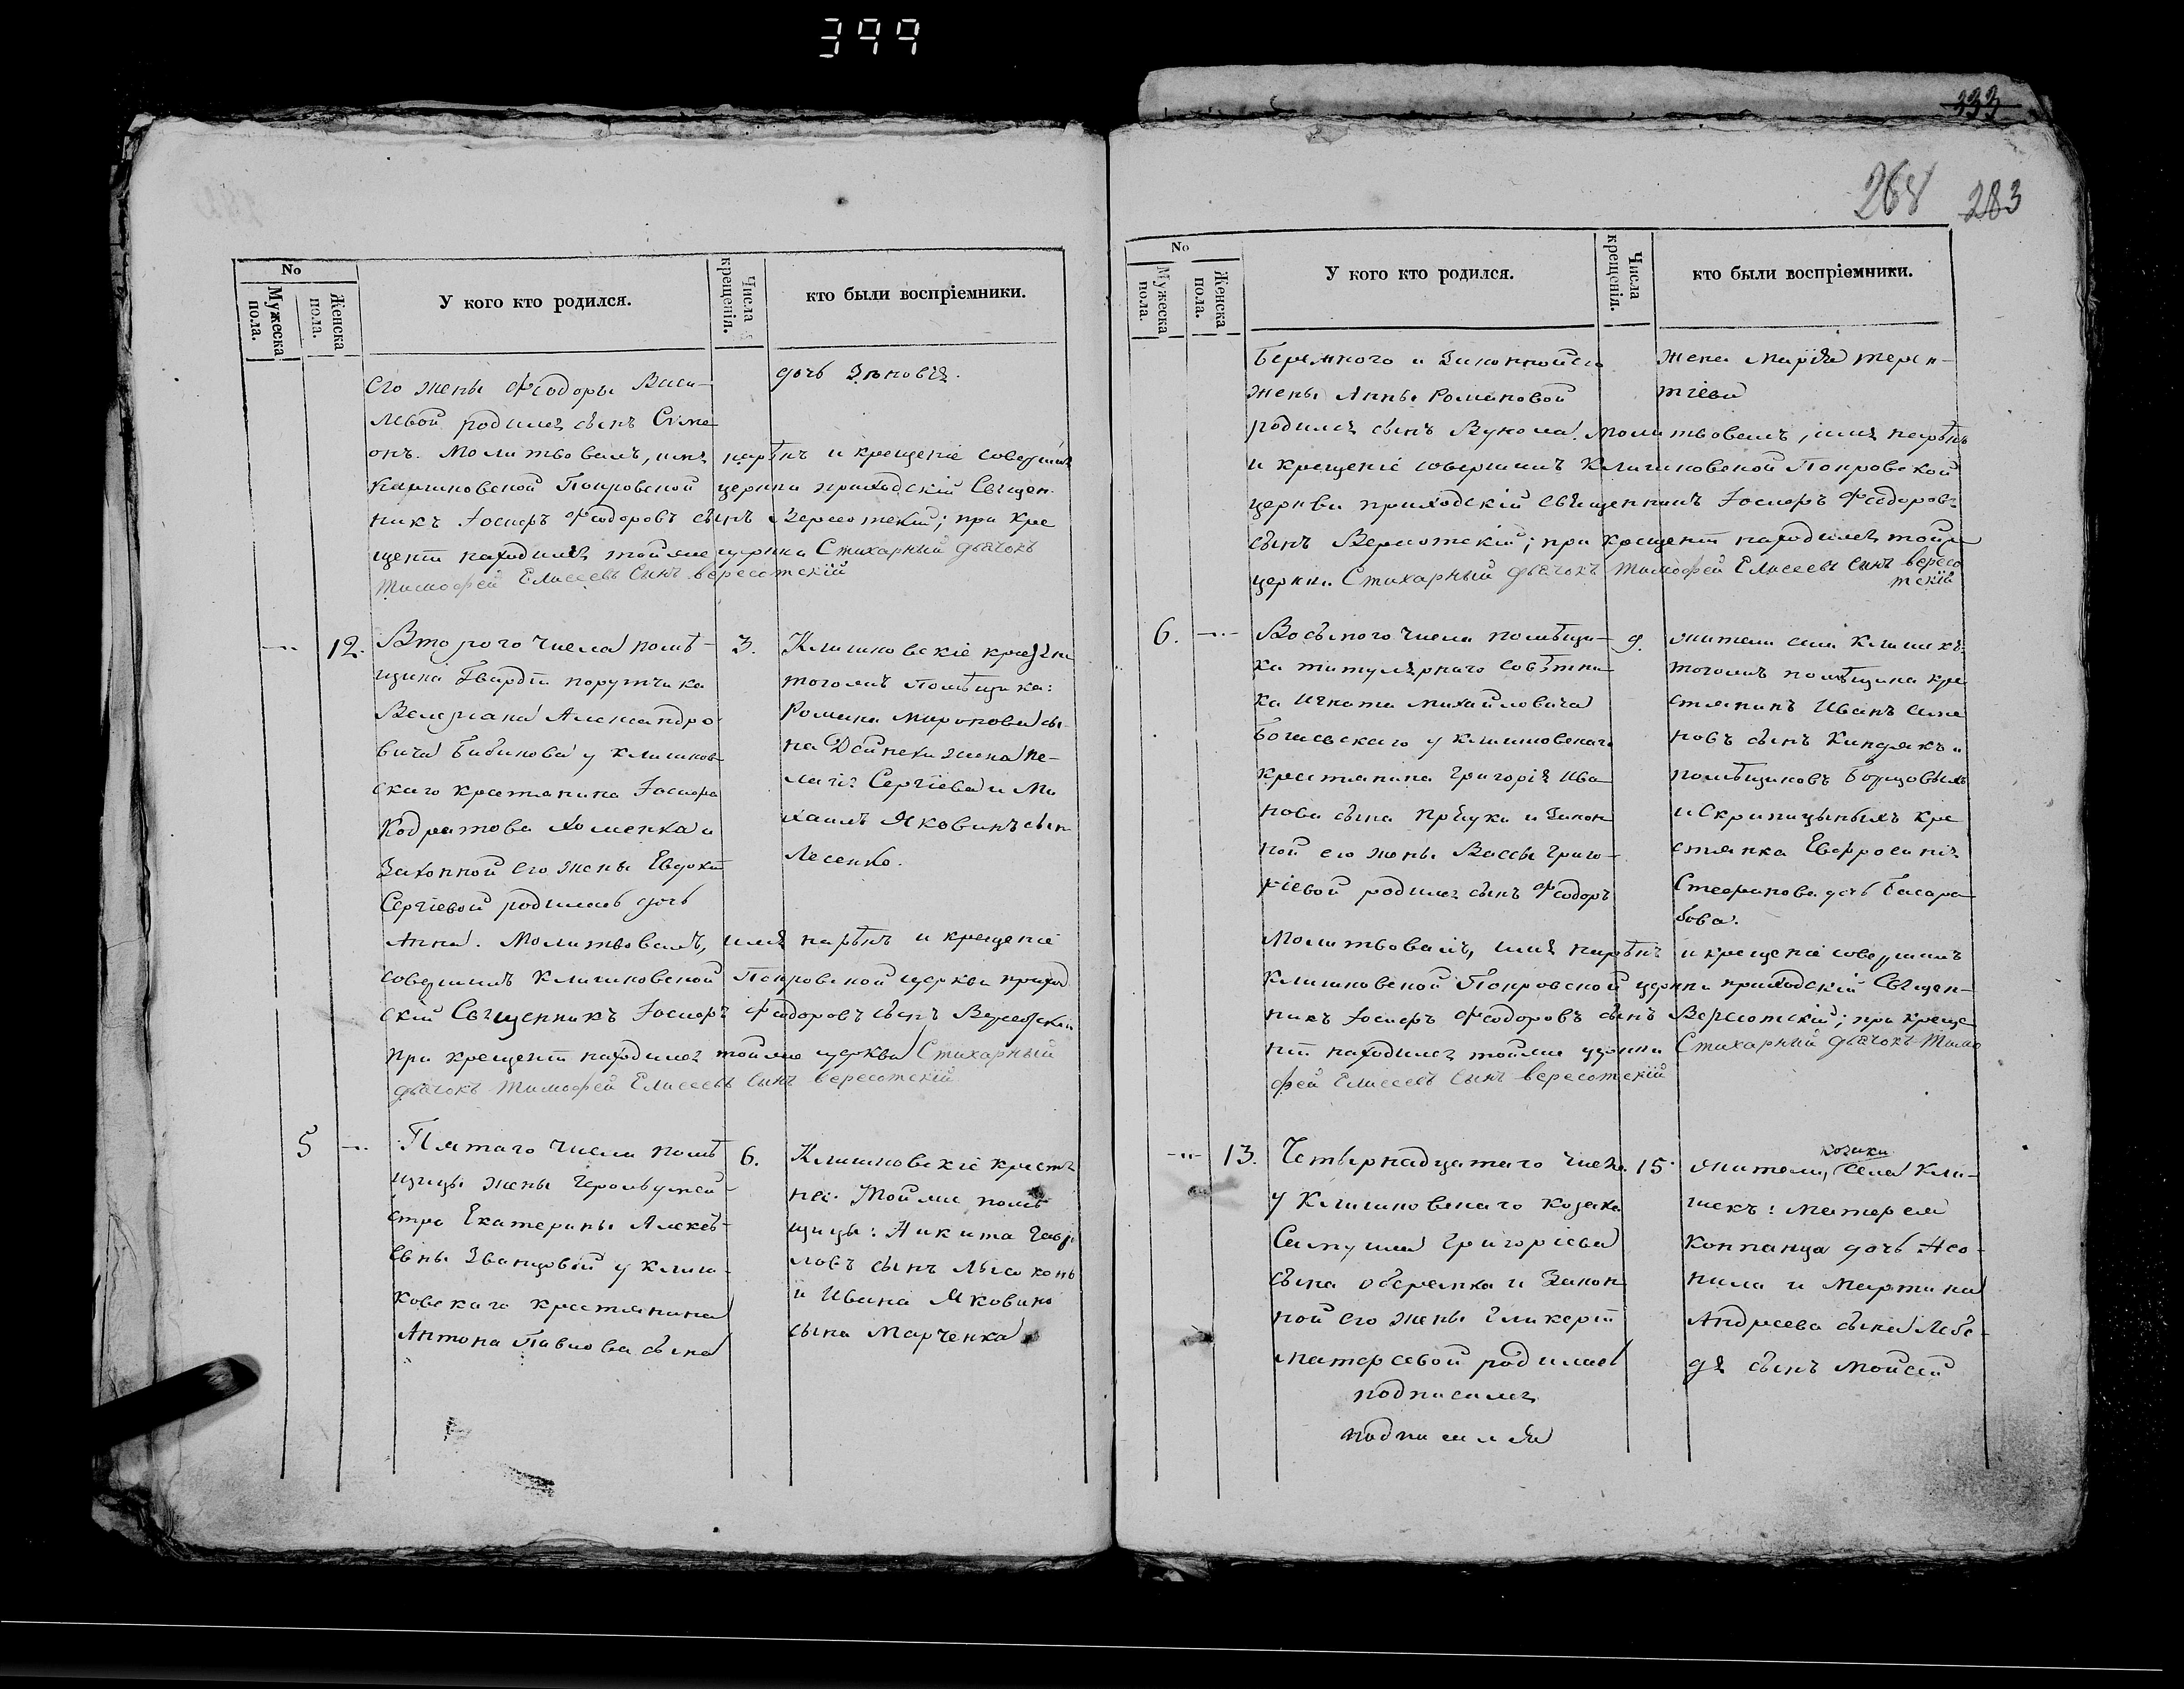 399
No
Мужеска пола.
Женска пола.
У кого кто родился.
Числа крещенія.
кто были воспріемники.
его жены Феодоры Васи-
левой родился сынъ Симе
онъ. Молитвовалъ, имя нарѣкъ и крещеніе совершилъ
Клишковской Покровской церкви приходскій Священ
никъ Іосифъ Феодоровъ сынъ Вересотскій; при кре
щеніи находился тойже церкви Стихарный дьячокъ
Тимофей Елисеевъ сынъ Вересотскій
дочь Зѣновія.
--- 12. Второго числа помѣ-
щика Гвардіи порутчика
Валеріана Александро
вича Бибикова у Клишков
скаго крестянина Іосифа
Кодратова Хоменка и
Законной его жены Евдокіи
Сергіевой родилась дочь
Анна. Молитвовалъ, имя нарѣкъ и крещеніе
совершилъ Клишковской Покровской церкви приход
скій Священникъ Іосифъ Феодоровъ сынъ Вересотскій
при крещеніи находился тойже церкви Стихарный
дьячокъ Тимофей Елисеевъ сынъ Вересотскій
3. Клишковскіе
тогожъ Помѣщика:
Романа Миронова сы-
на Дейнеки жена Пе-
лагія Сергіева и Ми
хаилъ Яковинъ сын
Лесенко.
5 --- Пятаго числа помѣ
щицы жены
Екатерины Алексѣ-
евны Званцовой у Клиш-
ковскаго крестянина
Антона Павлова сына
6. Клишковскіе крестя
не: Тойже помѣ
щицы: Никита Гавр
ловъ сынъ
и Ивана Яковино
сына Марченка
333
268 283
No
Мужеска пола.
Женска пола.
У кого кто родился.
Числа крещенія.
кто были воспріемники.
Беремного и Законной его
жены Анны Романовой
родился сынъ Вукола. Молитвовалъ, имя нарѣкъ
и крещеніе совершилъ Клишковской Покровской
церкви приходскій священникъ Іосифъ Феодоровъ
сынъ Вересотскій; при крещеніи находился тойже
церкви Стихарный дьячокъ Тимофей Елисеевъ сынъ Вересо
тскій
жена Марія Терен-
тіева
6. --- Восьмого числа помѣщи-
ка титулярнаго совѣтни
ка Игната Михайловича
у Клишковскаго
крестянина Григорія Ива
нова сына и Закон
ной его жены Вассы Григо-
ріевой родился сынъ Феодоръ
Молитвовалъ, имя нарѣкъ и крещеніе совершилъ
Клишковской Покровской церкви приходскій Священ-
никъ Іосифъ Феодоровъ сынъ Вересотскій; при креще
ніи находился тойже церкви Стихарный дьячокъ Тимо
фей Елисеевъ сынъ Вересотскій
9. жители села Клишекъ:
тогожъ помѣщика кре
стянинъ Иванъ
новъ сынъ Киндякъ и
помѣщиковъ
и Скрипицыныхъ кре
стянка Евфросинія
Стефанова дочь Басара
бова.
--- 13. Четырнадцатаго числа
у Клишковскаго козака
Самуила Григоріева
сына и Закон
ной его жены Гликеріи
родилась
подписался
подписался
15. жители, козаки села Кли-
шекъ:
дочь Нео-
нила и Мартина
Андреева сына Лебе-
дя сынъ Мойсей